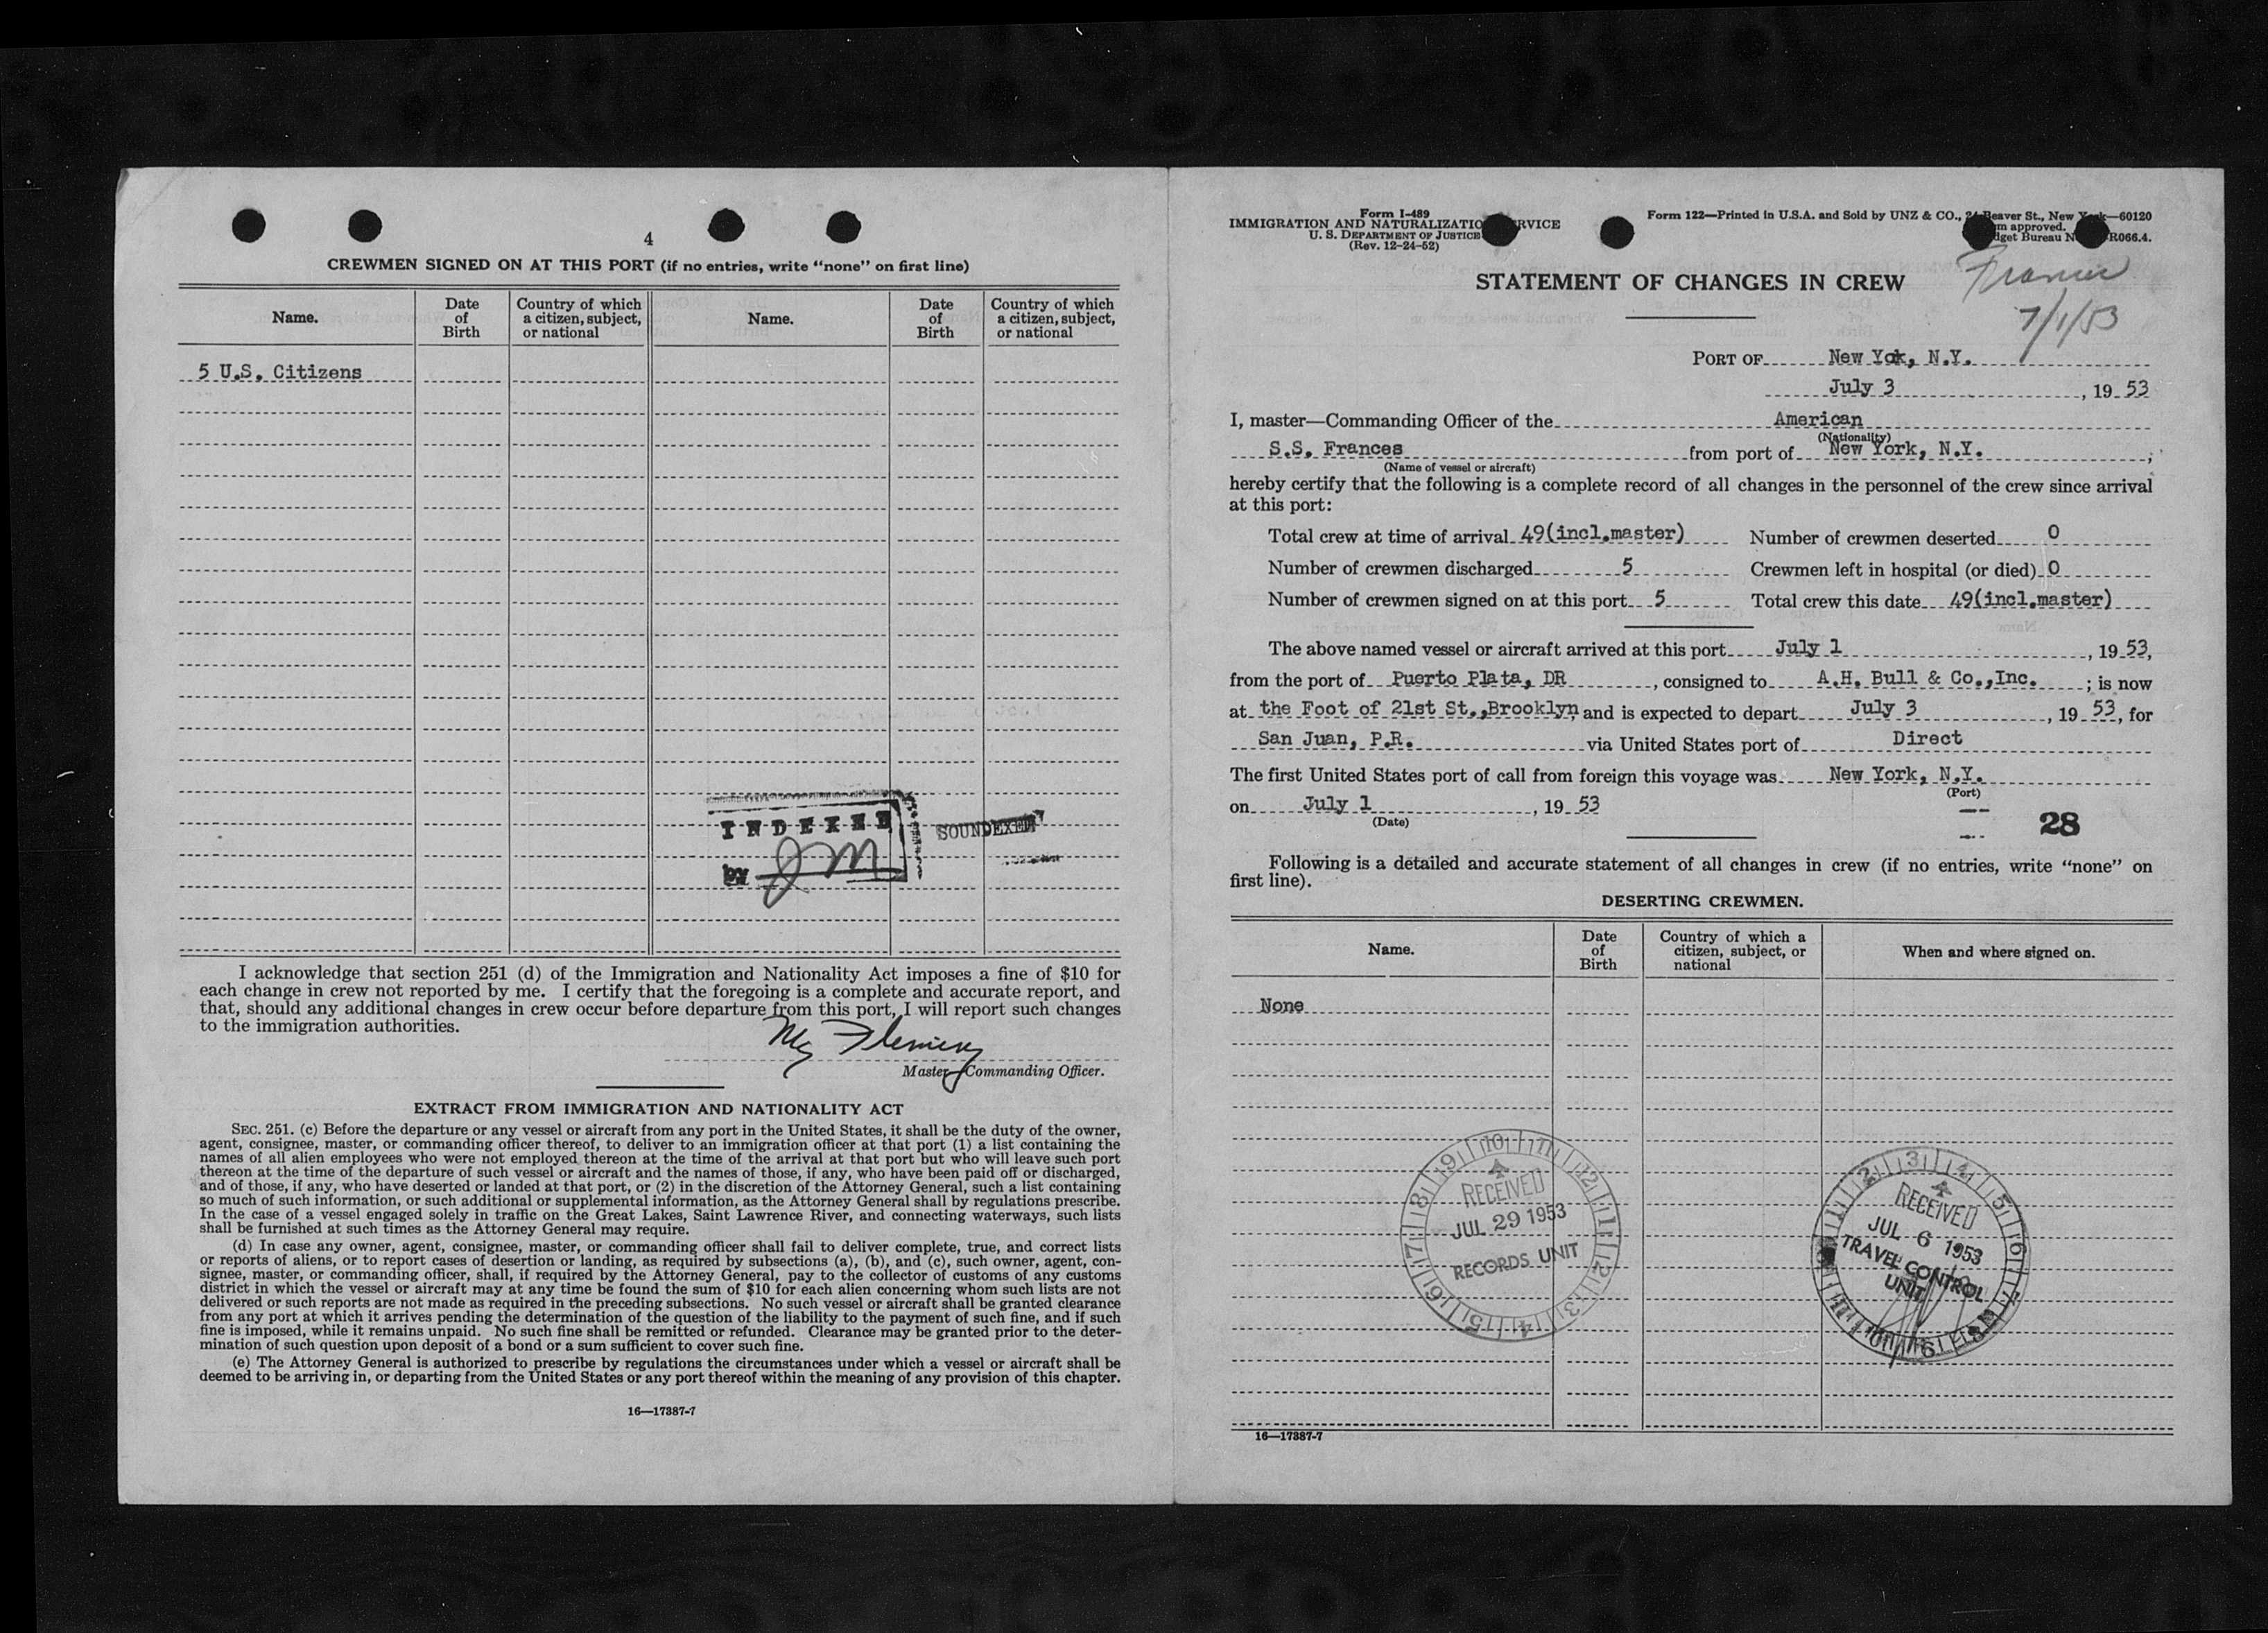 4
CREWMEN SIGNED ON AT THIS PORT (if no entries, write “none” on first line)
Name. Date of Birth Country of which a citizen, subject, or national Name. Date of Birth Country of which a citizen, subject, or national
5 U.S. Citizens
INDEXED
by JM
SOUNDEXED
I acknowledge that section 251 (d) of the Immigration and Nationality Act imposes a fine of $10 for
each change in crew not reported by me. I certify that the foregoing is a complete and accurate report, and
that, should any additional changes in crew occur before departure from this port, I will report such changes
to the immigration authorities.
Fleming
Master Commanding Officer.
EXTRACT FROM IMMIGRATION AND NATIONALITY ACT
SEC. 251. (c) Before the departure or any vessel or aircraft from any port in the United States, it shall be the duty of the owner,
agent, consignee, master, or commanding officer thereof, to deliver to an immigration officer at that port (1) a list containing the
names of all alien employees who were not employed thereon at the time of the arrival at that port but who will leave such port
thereon at the time of the departure of such vessel or aircraft and the names of those, if any, who have been paid off or discharged,
and of those, if any, who have deserted or landed at that port, or (2) in the discretion of the Attorney General, such a list containing
so much of such information, or such additional or supplemental information, as the Attorney General shall by regulations prescribe.
In the case of a vessel engaged solely in traffic on the Great Lakes, Saint Lawrence River, and connecting waterways, such lists
shall be furnished at such times as the Attorney General may require.
(d) In case any owner, agent, consignee, master, or commanding officer shall fail to deliver complete, true, and correct lists
or reports of aliens, or to report cases of desertion or landing, as required by subsections (a), (b), and (c), such owner, agent, con-
signee, master, or commanding officer, shall, if required by the Attorney General, pay to the collector of customs of any customs
district in which the vessel or aircraft may at any time be found the sum of $10 for each alien concerning whom such lists are not
delivered or such reports are not made as required in the preceding subsections. No such vessel or aircraft shall be granted clearance
from any port at which it arrives pending the determination of the question of the liability to the payment of such fine, and if such
fine is imposed, while it remains unpaid. No such fine shall be remitted or refunded. Clearance may be granted prior to the deter-
mination of such question upon deposit of a bond or a sum sufficient to cover such fine.
(e) The Attorney General is authorized to prescribe by regulations the circumstances under which a vessel or aircraft shall be
deemed to be arriving in, or departing from the United States or any port thereof within the meaning of any provision of this chapter.
16—17387-7
Form I-489
IMMIGRATION AND NATURALIZATIO RVICE
U. S. DEPARTMENT OF JUSTICE
(Rev. 12-24-52)
Form 122—Printed in U.S.A. and Sold by UNZ & CO., 24 Beaver St., New York—60120
m approved.
dget Bureau N R066.4.
STATEMENT OF CHANGES IN CREW
7/1/53
PORT OF New Yok, N.Y.
July 3, 19 53
I, master—Commanding Officer of the American
(Nationality)
S.S. Frances from port of New York, N.Y.,
(Name of vessel or aircraft)
hereby certify that the following is a complete record of all changes in the personnel of the crew since arrival
at this port:
Total crew at time of arrival 49(incl.master) Number of crewmen deserted 0
Number of crewmen discharged 5 Crewmen left in hospital (or died) 0
Number of crewmen signed on at this port 5 Total crew this date 49(incl.master)
The above named vessel or aircraft arrived at this port July 1, 19 53,
from the port of Puerto Plata, DR, consigned to A.H. Bull & Co.,Inc.; is now
at the Foot of 21st St.,Brooklyn and is expected to depart July 3, 19 53, for
San Juan, P.R. via United States port of Direct
The first United States port of call from foreign this voyage was New York, N.Y.
(Port)
on July 1, 19 53
(Date)
28
Following is a detailed and accurate statement of all changes in crew (if no entries, write “none” on
first line).
DESERTING CREWMEN.
Name. Date of Birth Country of which a citizen, subject, or national When and where signed on.
None
RECEIVED
JUL 29 1953
RECORDS UNIT
RECEIVED
JUL 6 1953
TRAVEL CONTROL
UNIT
16—17387-7